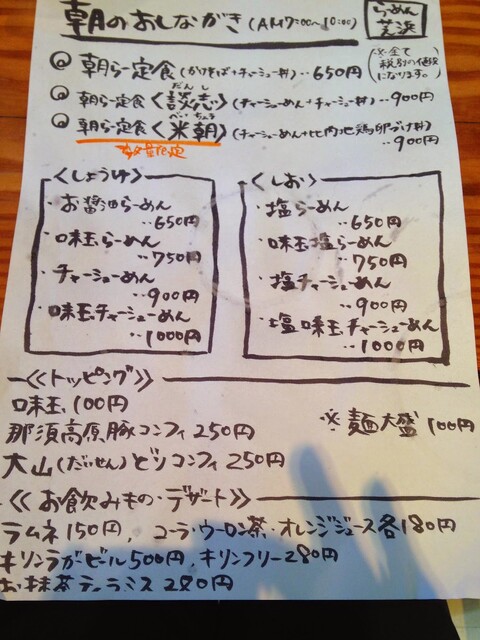 朝のおしながき (AM7:00〜10:00)
らーめん
芝浜
◎ 朝らー定食 (かけそば+チャーシュー丼) ‥650円
(※全て
税別の値段
になります。)
◎ 朝らー定食〈談志〉(チャーシューめん+チャーシュー丼) ‥900円
だんし
◎ 朝らー定食〈米朝〉(チャーシューめん+比内地鶏卵づけ丼)
べいちょう
‥900円
数量限定
〈しょうゆ〉
・お醤油らーめん
‥650円
・味玉らーめん
‥750円
・チャーシューめん
‥900円
・味玉チャーシューめん
‥1000円
〈しお〉
・塩らーめん
‥650円
・味玉塩らーめん
‥750円
・塩チャーシューめん
‥900円
・塩味玉チャーシューめん
‥1000円
《トッピング》
味玉 100円
那須高原豚コンフィ 250円
※麺大盛 100円
大山(だいせん)どりコンフィ 250円
《お飲みもの・デザート》
ラムネ 150円, コーラ・ウーロン茶・オレンジジュース各180円
キリンラガービール 500円, キリンフリー 280円
お抹茶ティラミス 280円